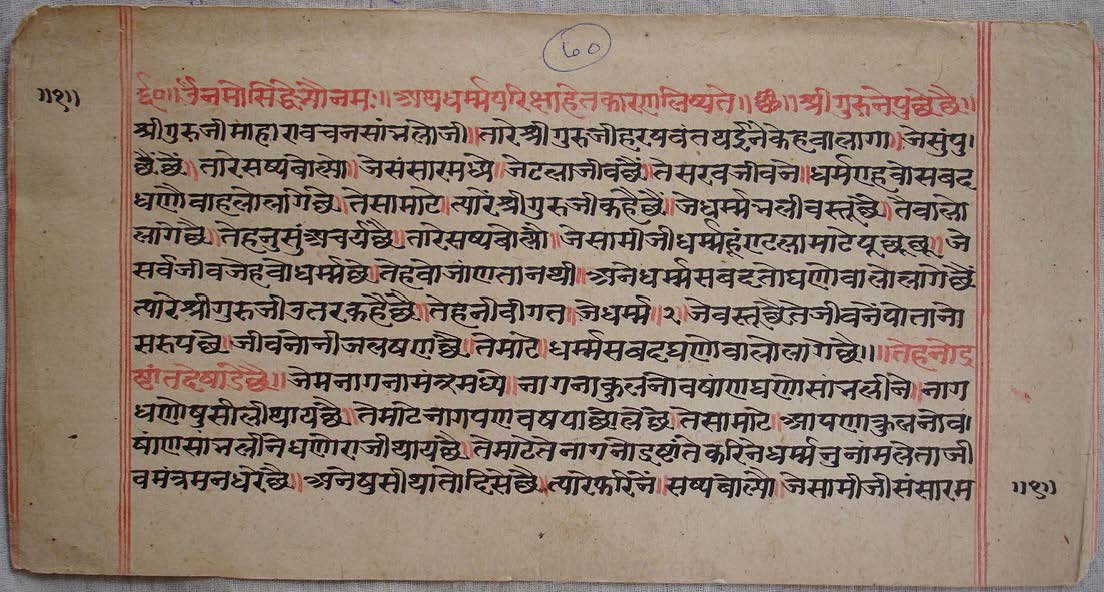 ६०
॥१॥
र्द०॥ ॐ नमोसिद्धेभ्यौनमः॥ अथधर्म्मपरिक्षाहेतकारणलिष्यते॥ छ॥ श्रीगुरुनेपुछेछै॥
श्रीगुरुजीमाहारावचनसांभलोजी॥ तारेश्रीगुरुजीहरषवंतथईनेकेहवालागा॥ जेसुंपु।
छैंछैं॥ तारेसष्यबोल्या॥ जेसंसारमध्ये॥ जेटलाजीवछैं॥ तेसरवजीवने॥ धर्मएहवोसबद
घणौवाहलोलागेछै॥ तेसामाटे॥ त्यारेंश्रीगुरुजीकहैछैं॥ जेधर्म्मभलीवस्तूछै॥ तेवालो
लागेछै॥ तेहनुसुंअचर्यछै॥ तारेसष्यबोल्यौ॥ जेसामीजीधर्म्महूंएटलामाटेपूछूछू॥ जे
सर्वजीवजेहवोधर्म्मछे॥ तेहवोजाणतानथी॥ अनेधर्म्मसबदतोघणोवालोलागेछैं
त्यारेश्रीगुरुजीउतरकहैंछै॥ तेहनीवीगत॥ जेधर्म्म॥२॥ जेवस्तूछैतेजीवनेंपोतानो
सरुपछे॥ जीवनोनीजलषणछै॥ तेमाटे॥ धर्म्मसबदघणोवालोलागेछै॥॥ तेहनोद्र
ष्टांतदेषाडेछै॥ जेमनागनामंत्रमध्ये॥ नागनाकुलनोवषांणघणोसांभलीने॥ नाग
घणोषुसीलीथायछै॥ तेमाटेनागपणवषपाछोलेछे॥ तेसामाटे॥ आपणाकुलनोव।
षांणसांभलीनेघणोराजीथायछै॥ तेमाटेतेनागनोद्रष्टांतेकरिनेधर्म्मनुनांमलेताजी
वमंत्रमनधरेछै॥ अनेषुसीथातोदिसेछै॥ त्यारेफरिनें॥ सष्यबोल्यौ॥ जेसामीजीसंसारम
॥१॥